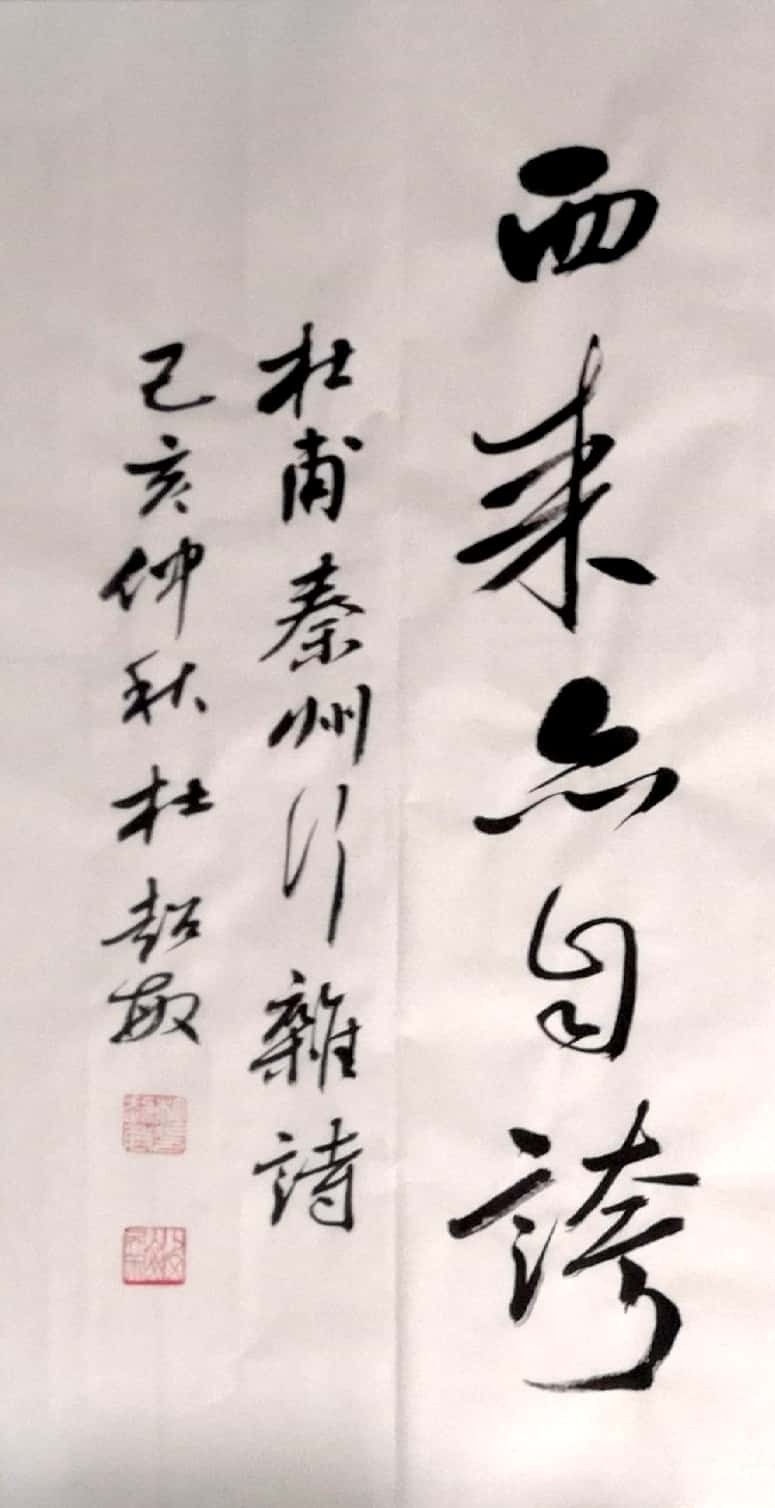 西来亦自誇
杜甫秦州行雜詩
己亥仲秋杜超敏